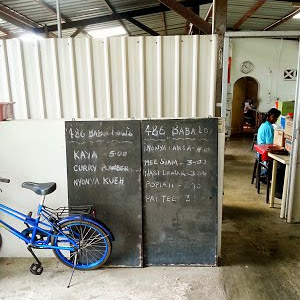 486 BABA LOW'S
KAYA - 5.00
CURRY POWDER -
NYONYA KUEH
486 BABA LO
NYONYA LAKSA - 4.00
MEE SIAM - 3.00
NASI LEMAK - 3.00
POPIAH
PAI TEE 3